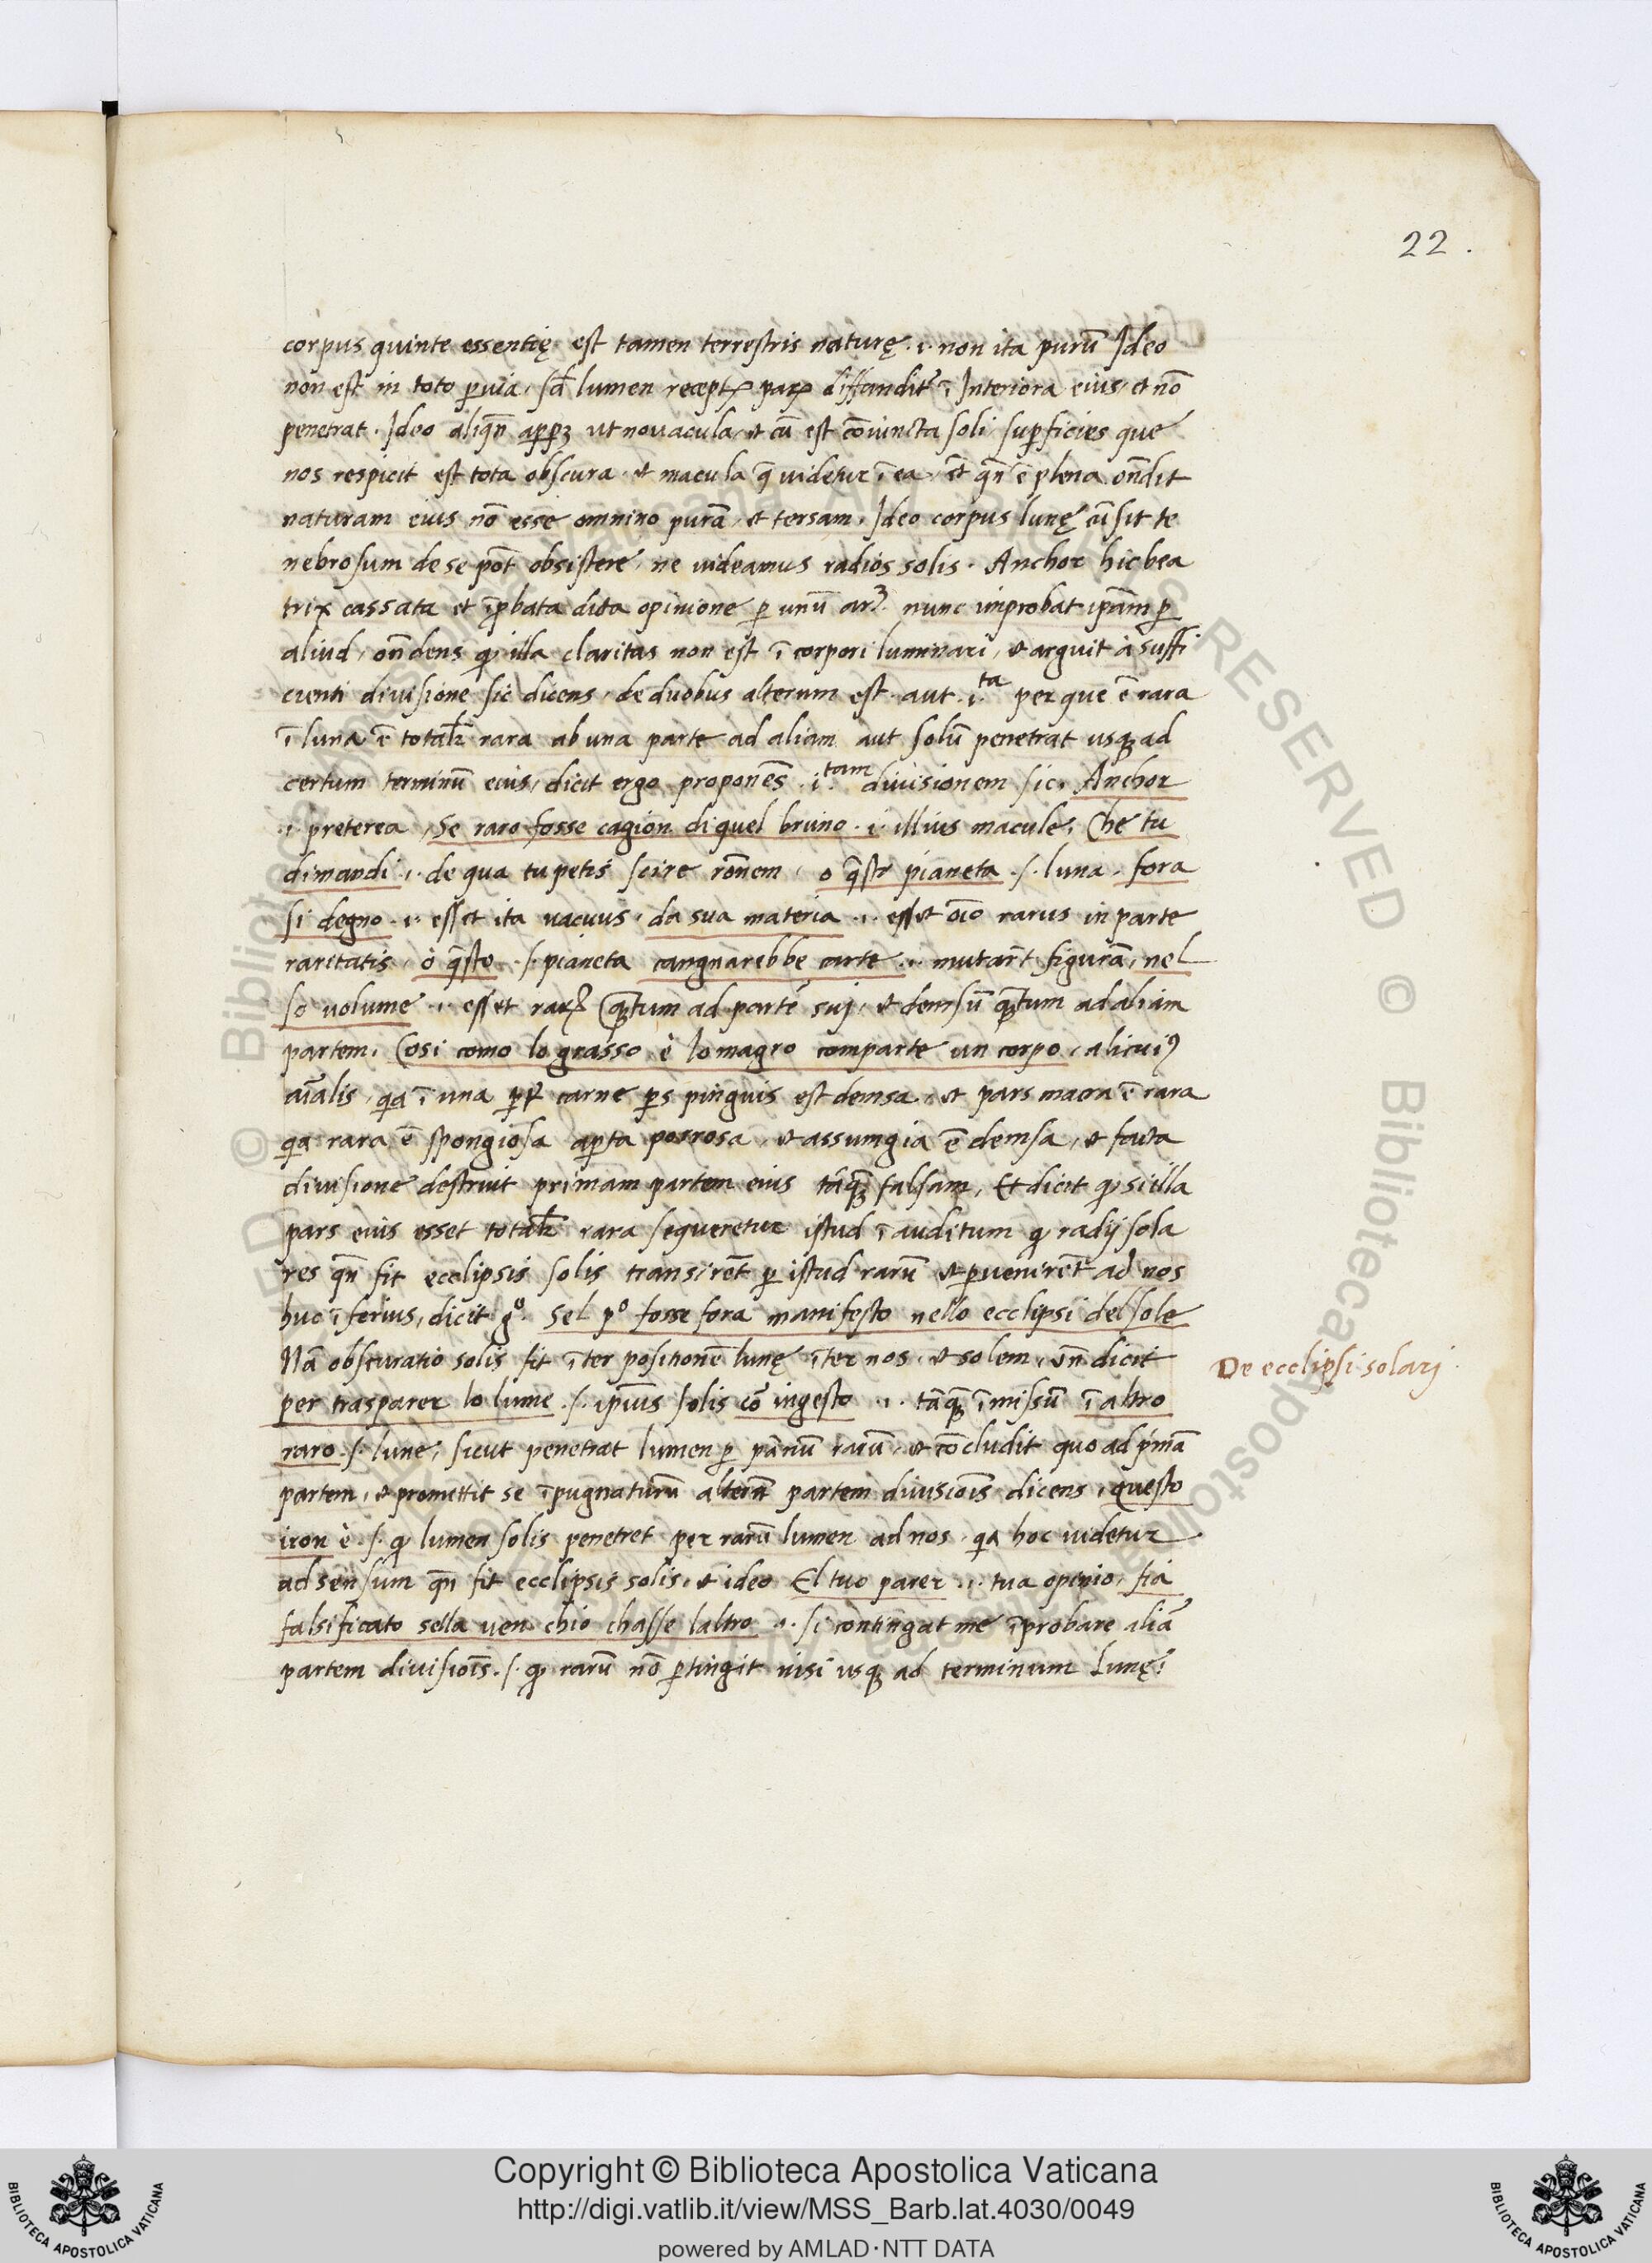 22.
corpus quinte essentię est tamen terrestris naturę .i. non ita purū Ideo
non est in toto ꝑuia, sꝫ lumen recept, parꝫ diffundit᷑ ī Interiora eius, et nō
penetrat. Ideo aliqn̄ apparꝫ ut nouacula, et cū est cōiuncta soli suꝑficies que
nos respicit est tota obscura. et macula q̄ uidetur ī ea, et qn̄ ē plena on̄dit
naturam eius nō esse omnino purā, et tersam, Ideo corpus lunę cū sit te
nebrosum de se pōt obsistere, ne uideamus radios solis. Anchor hic bea
trix cassata et īprobata dicta opinione ꝑ unū arꝫ. nunc improbat ip̄am ꝑ
aliud, on̄dens ꝙ illa claritas non est ī corpori luminari, et arguit à suffi
cienti diuisione sic dicens, de duobus alterum est. aut .i.ta per que ē rara
ī luna ē totalr̄ rara ab una parte ad aliam aut solū penetrat usq̨ ad
certum terminū eius, dicit ergo proponēs .i.tam diuisionem sic, Anchor
.i. preterea, Se raro fosse cagion di quel bruno .i. illius macule, Che tu
dimandi .i. de qua tu petis scire rōnem, o q̄str pianeta .s. luna, fora
si degno .i. esset ita uacuus, da sua materia .i. esset oīo rarus in parte
raritatis, ò q̄sto .s. pianeta cangnarebbe carte .i. mutar̄t figurā, nel
so uolume .i. esset rarꝫ q̄tum ad partē suj, et demsū q̄tum ad aliam
partem, Cosi como lo grasso è lo magro comparte un corpo, alicuiꝰ
aīalis, qa ī una carne ps pinguis est demsa, et pars macra ē rara
qa rara ē spongiosa aꝑta porrosa, et assumgia ē demsa, et facta
diuisione destruit primam partem eius tāq̄ falsam, Et dicit ꝙ si illa
pars eius esset totalr̄ rara sequeretur istud ī auditum ꝙ radij sola
res qn̄ fit ecclipsis solis transirēt ꝑ istud rarū et ꝑuenirēt ad nos
huc īferius, dicit gͦ. Sel pͦ fosse fora manifesto nello ecclipsi del sole
Nā obscuratio solis fit īter positionē lunę īter nos, et solem, un̄ dicit
per trasparer lo lume .s. ip̄ius solis cō ingesto .i. tāq̄ īmissū ī altro
raro .s. lune, sicut penetrat lumen ꝑ pānū rarū, et cōcludit quo ad p̄mā
partem, et promettit se īpugnaturū alterā partem diuisiōis dicens, questo
iron è .s. ꝙ lumen solis penetret per rarū lumen ad nos, qa hoc uidetur
ad sensum qn̄ fit ecclipsis solis, et ideo El tuo parer .i. tua opinio, fia
falsificato sella uen chio chasse laltro .i. si contingat me īprobare aliā
partem diuisiōis .s. ꝙ rarū nō ꝑtingit nisi usq̨ ad terminum Lunę,
De ecclipsi solarj.
Copyright © Biblioteca Apostolica Vaticana
http://digi.vatlib.it/view/MSS_Barb.lat.4030/0049
powered by AMLAD·NTT DATA